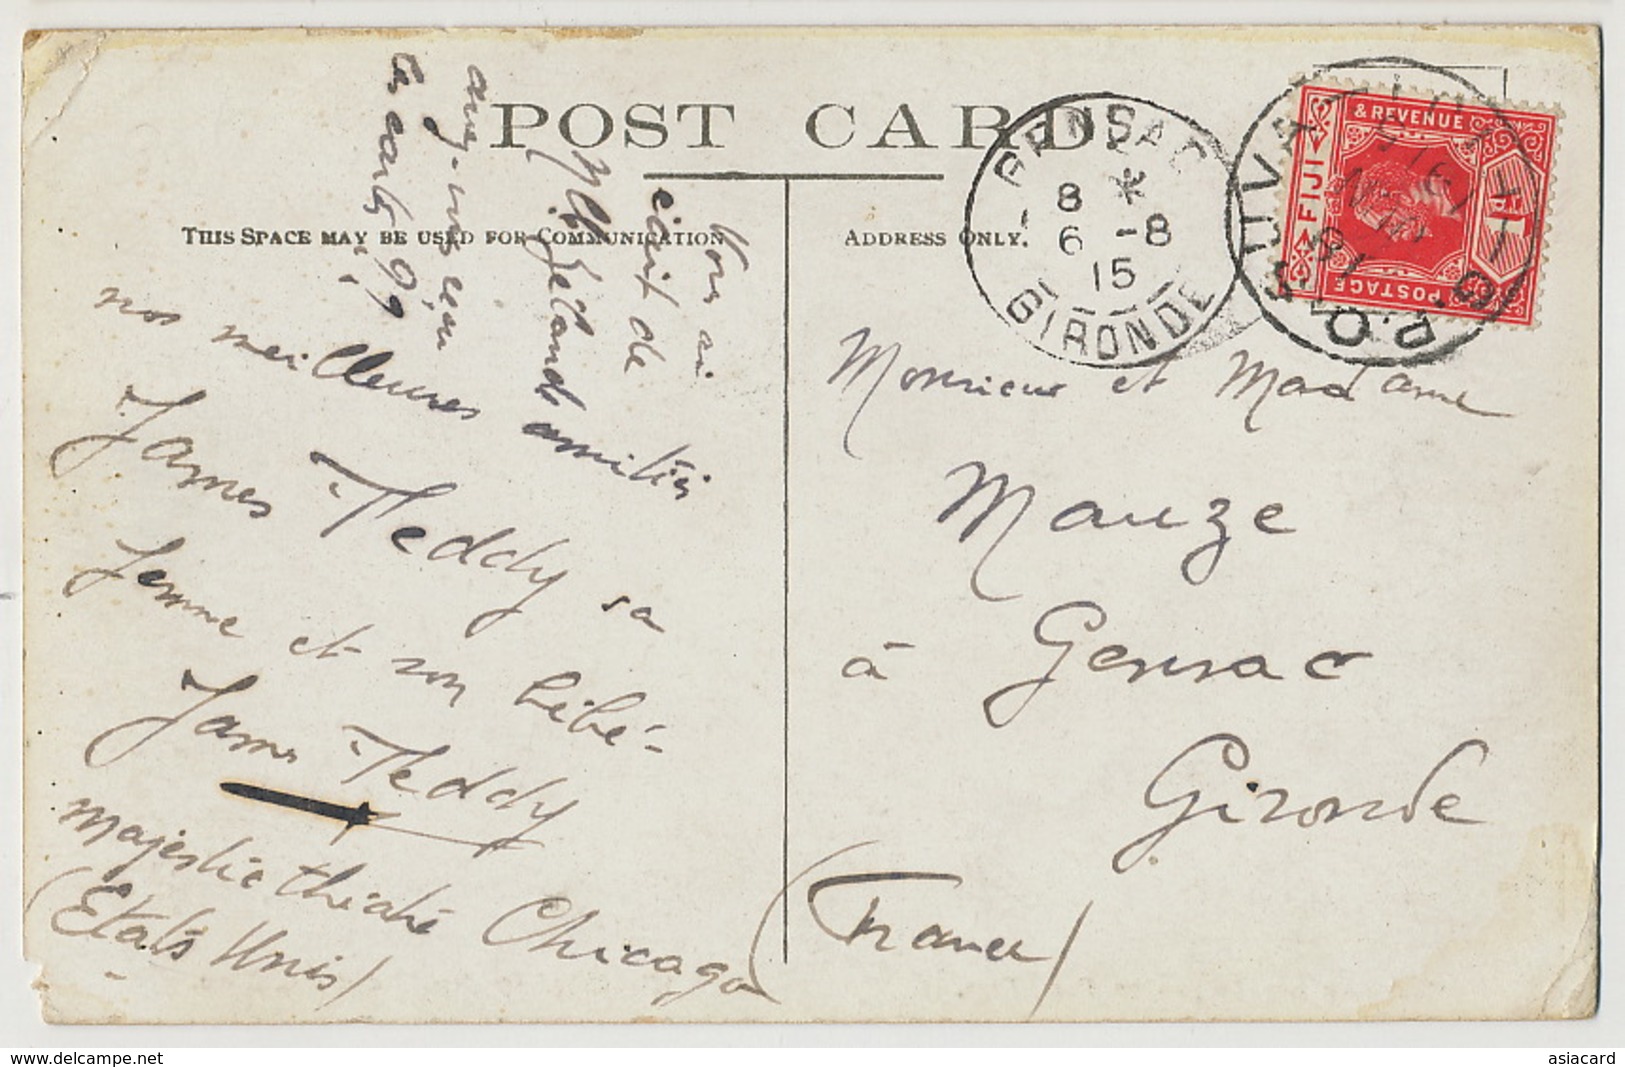 POST CARD
THIS SPACE MAY BE USED FOR COMMUNICATION
ADDRESS ONLY.
nos meilleures amitiés
James Teddy sa
femme et son bébé -
James Teddy
Majestic théâtre Chicago
(Etats Unis)
Vous ai
écrit de
Nlle Zélande
avez-vous reçu
les cartes ??
Monsieur et Madame
Mauze
à Gensac
Gironde
(France)
GENSAC
8 *
6 -8
15
GIRONDE
& REVENUE
FIJI
POSTAGE
1d
G.P.O.
SUVA
FIJI
www.delcampe.net
asiacard